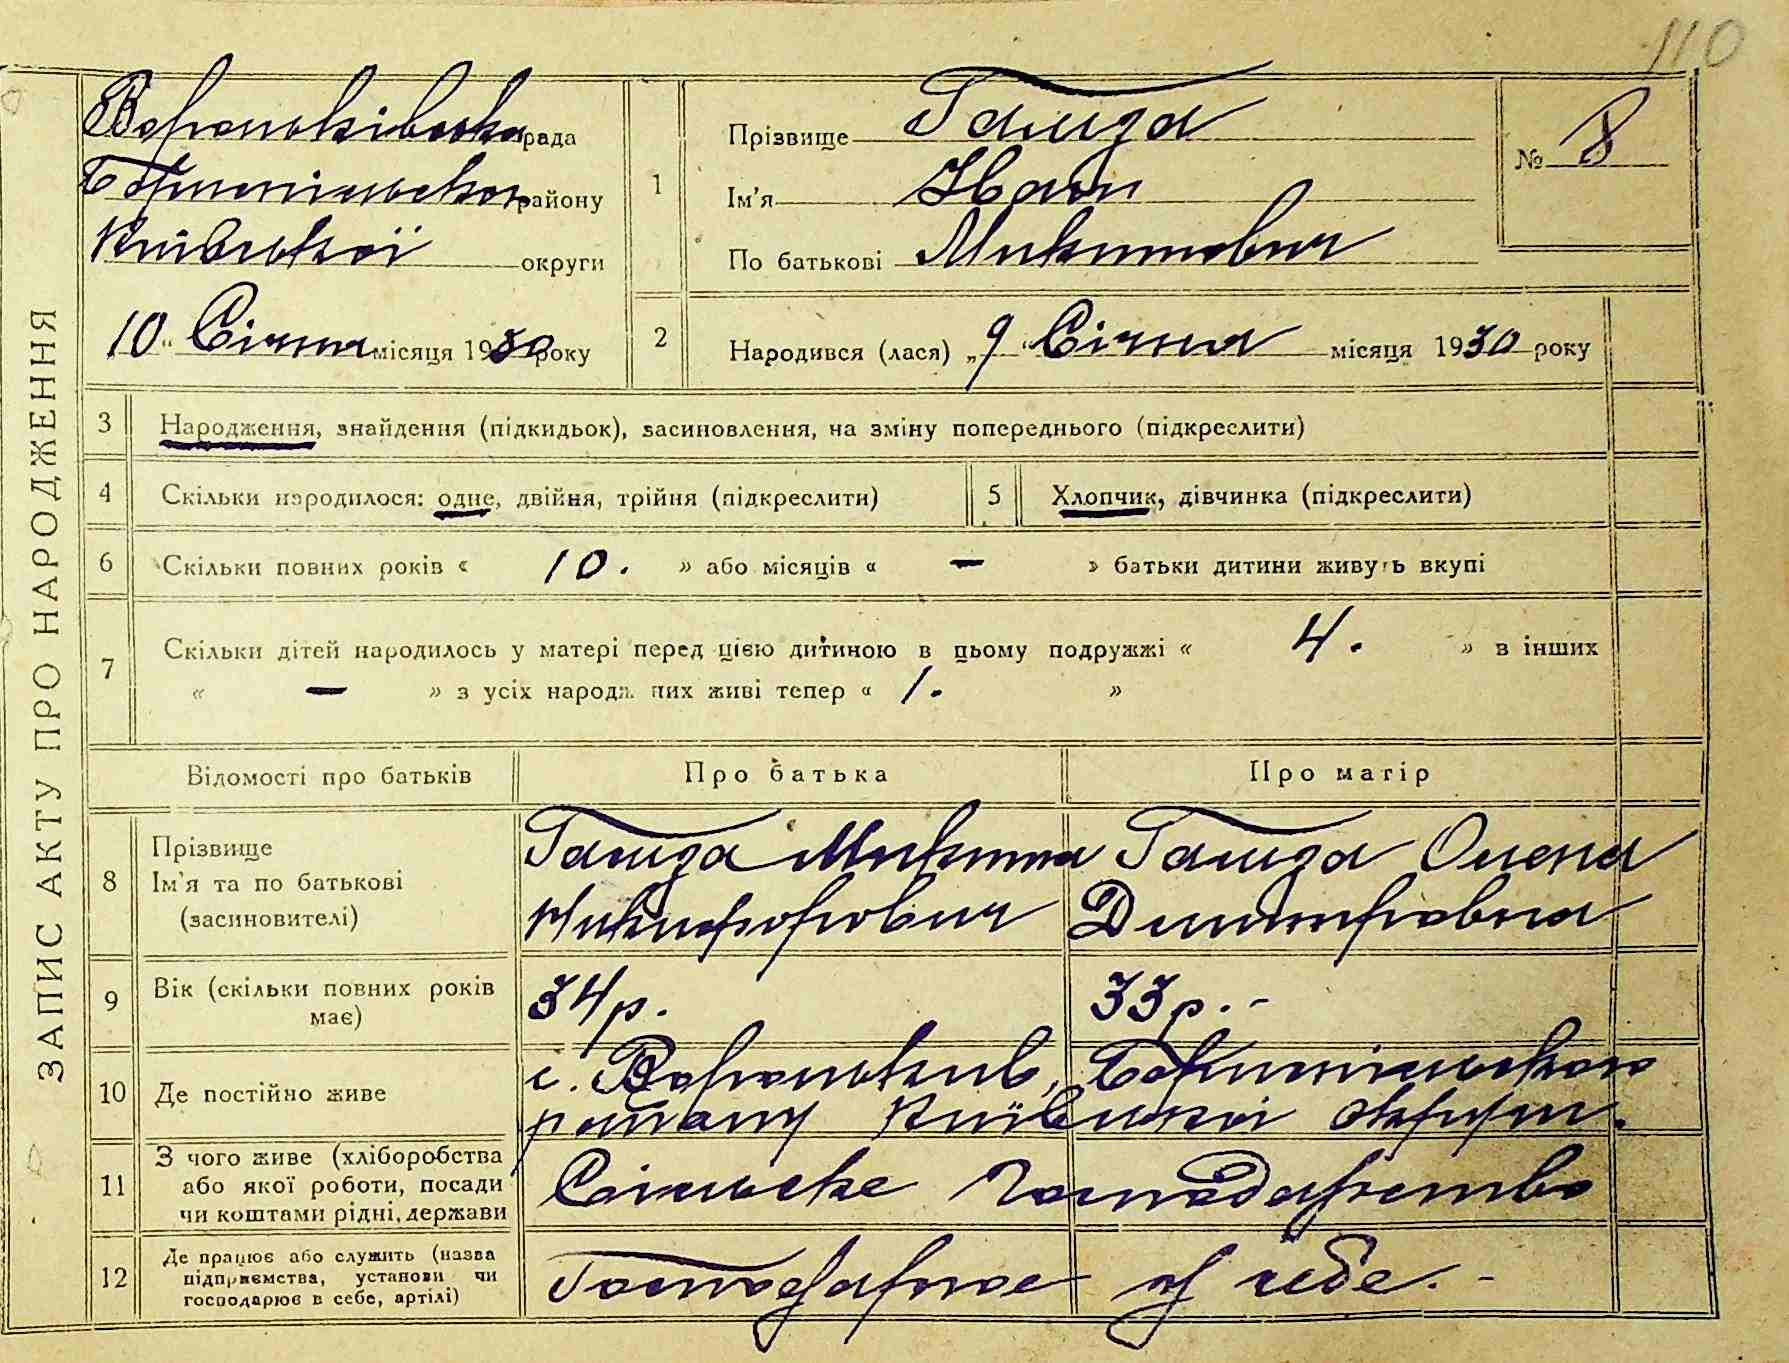 110
ЗАПИС АКТУ ПРО НАРОДЖЕННЯ
Вороньківська рада
Бориспільського району
Київської округи
10 " Січня місяця 1930 року
1 Прізвище Гамза
Ім'я Іван
По батькові Микитович
№ 8
2 Народився (лася) „9 " Січня місяця 1930 року
3 Народження, знайдення (підкидьок), засиновлення, на зміну попереднього (підкреслити)
4 Скільки народилося: одне, двійня, трійня (підкреслити)
5 Хлопчик, дівчинка (підкреслити)
6 Скільки повних років « 10. » або місяців « — » батьки дитини живуть вкупі
7 Скільки дітей народилось у матері перед цією дитиною в цьому подружжі « 4. » в інших
« — » з усіх народж них живі тепер « 1. »
Відомості про батьків Про батька Про матір
8 Прізвище
Ім'я та по батькові
(засиновителі)
Гамза Микита
Никифорович
Гамза Олена
Дмитровна
9 Вік (скільки повних років
має)
34 р.
33 р. -
10 Де постійно живе
с. Вороньків, Бориспільського
району Київської округи.
11 З чого живе (хліборобства
або якої роботи, посади
чи коштами рідні, держави
Сільське Господарство
12 Де працює або служить (назва
підприємства, установи чи
господарює в себе, артілі)
Господарює у себе. -